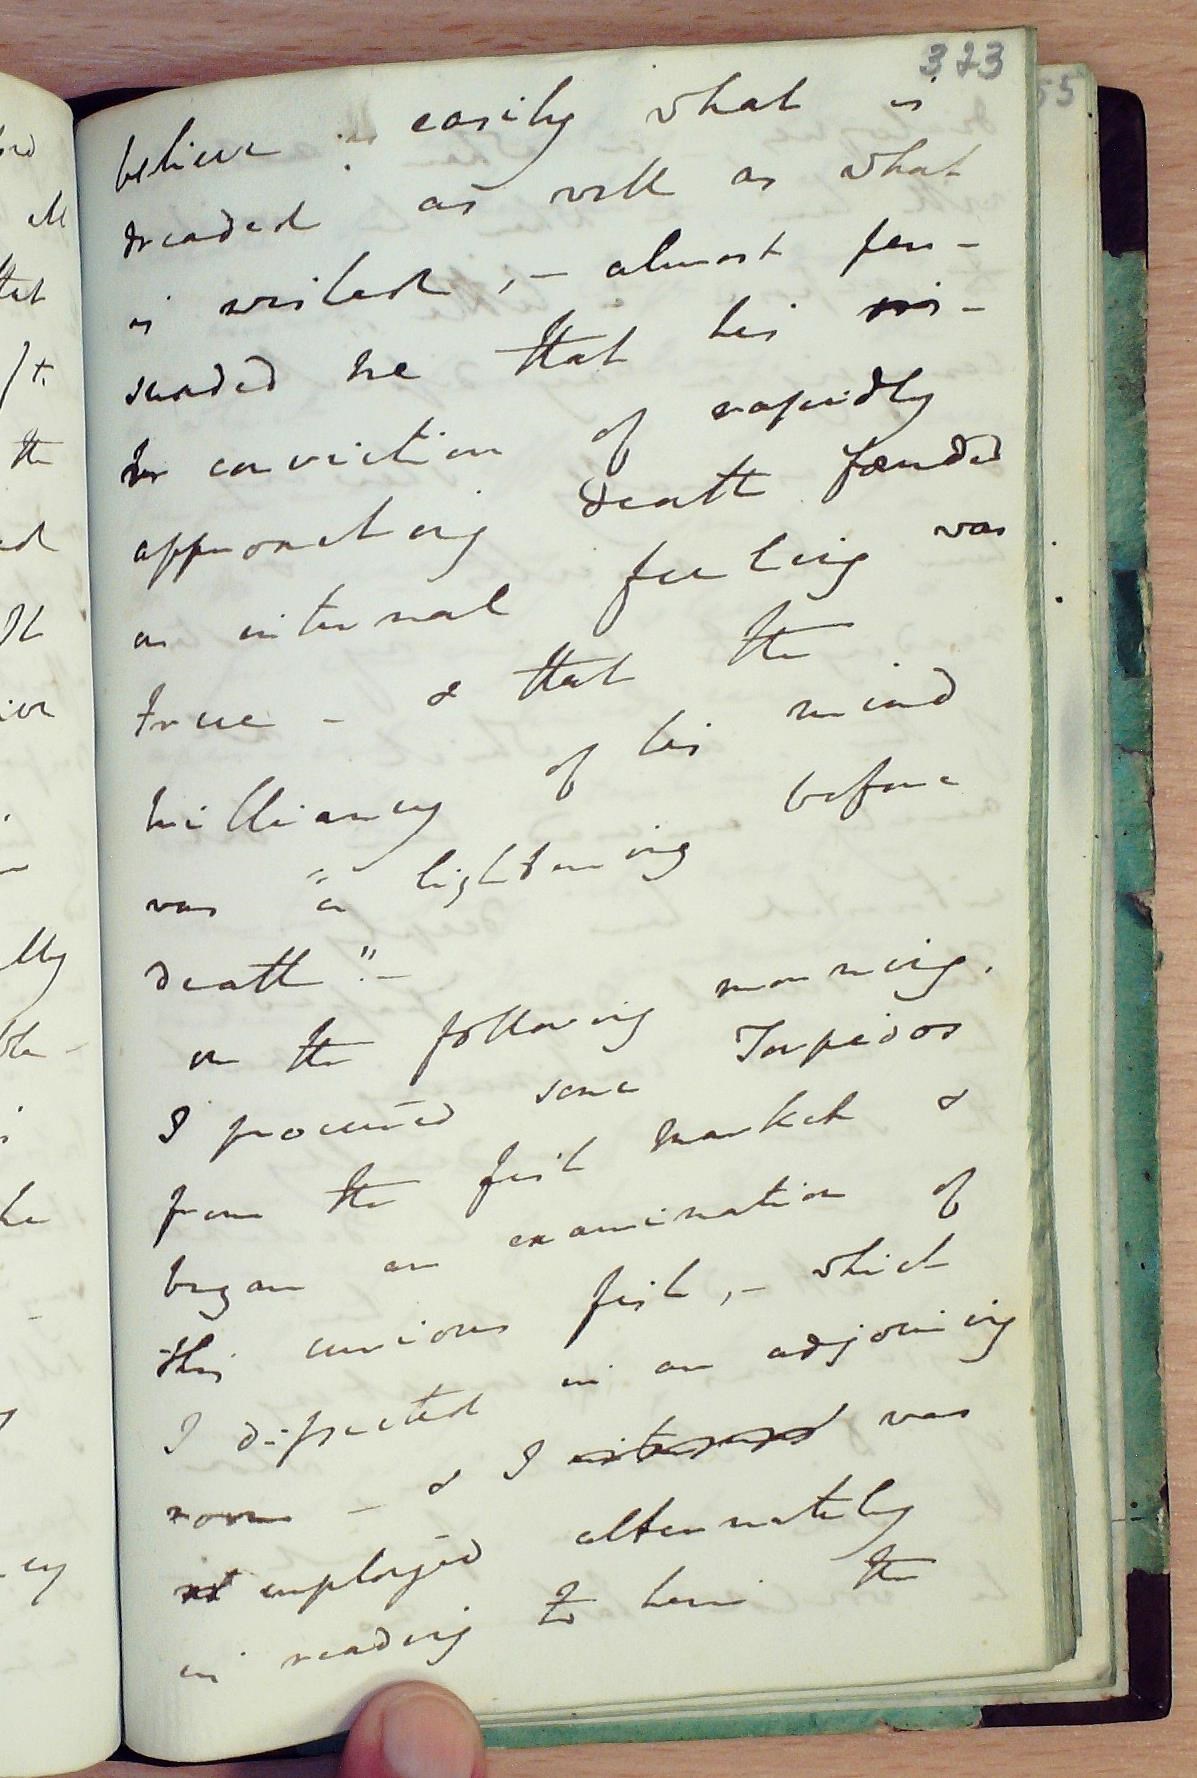 323
believe as easily what is
dreaded as well as what
is wished, – almost per-
suaded me that his
conviction of rapidly
approaching death founded
on internal feeling was
true – & that the
brilliancy of his mind
was "a lightening before
death". –
on the following morning.
I procured some Torpedos
from the fish market &
began an examination of
this curious fish, – which
I dissected in an adjoining
room – & I was
employed alternately
in reading to him the
55